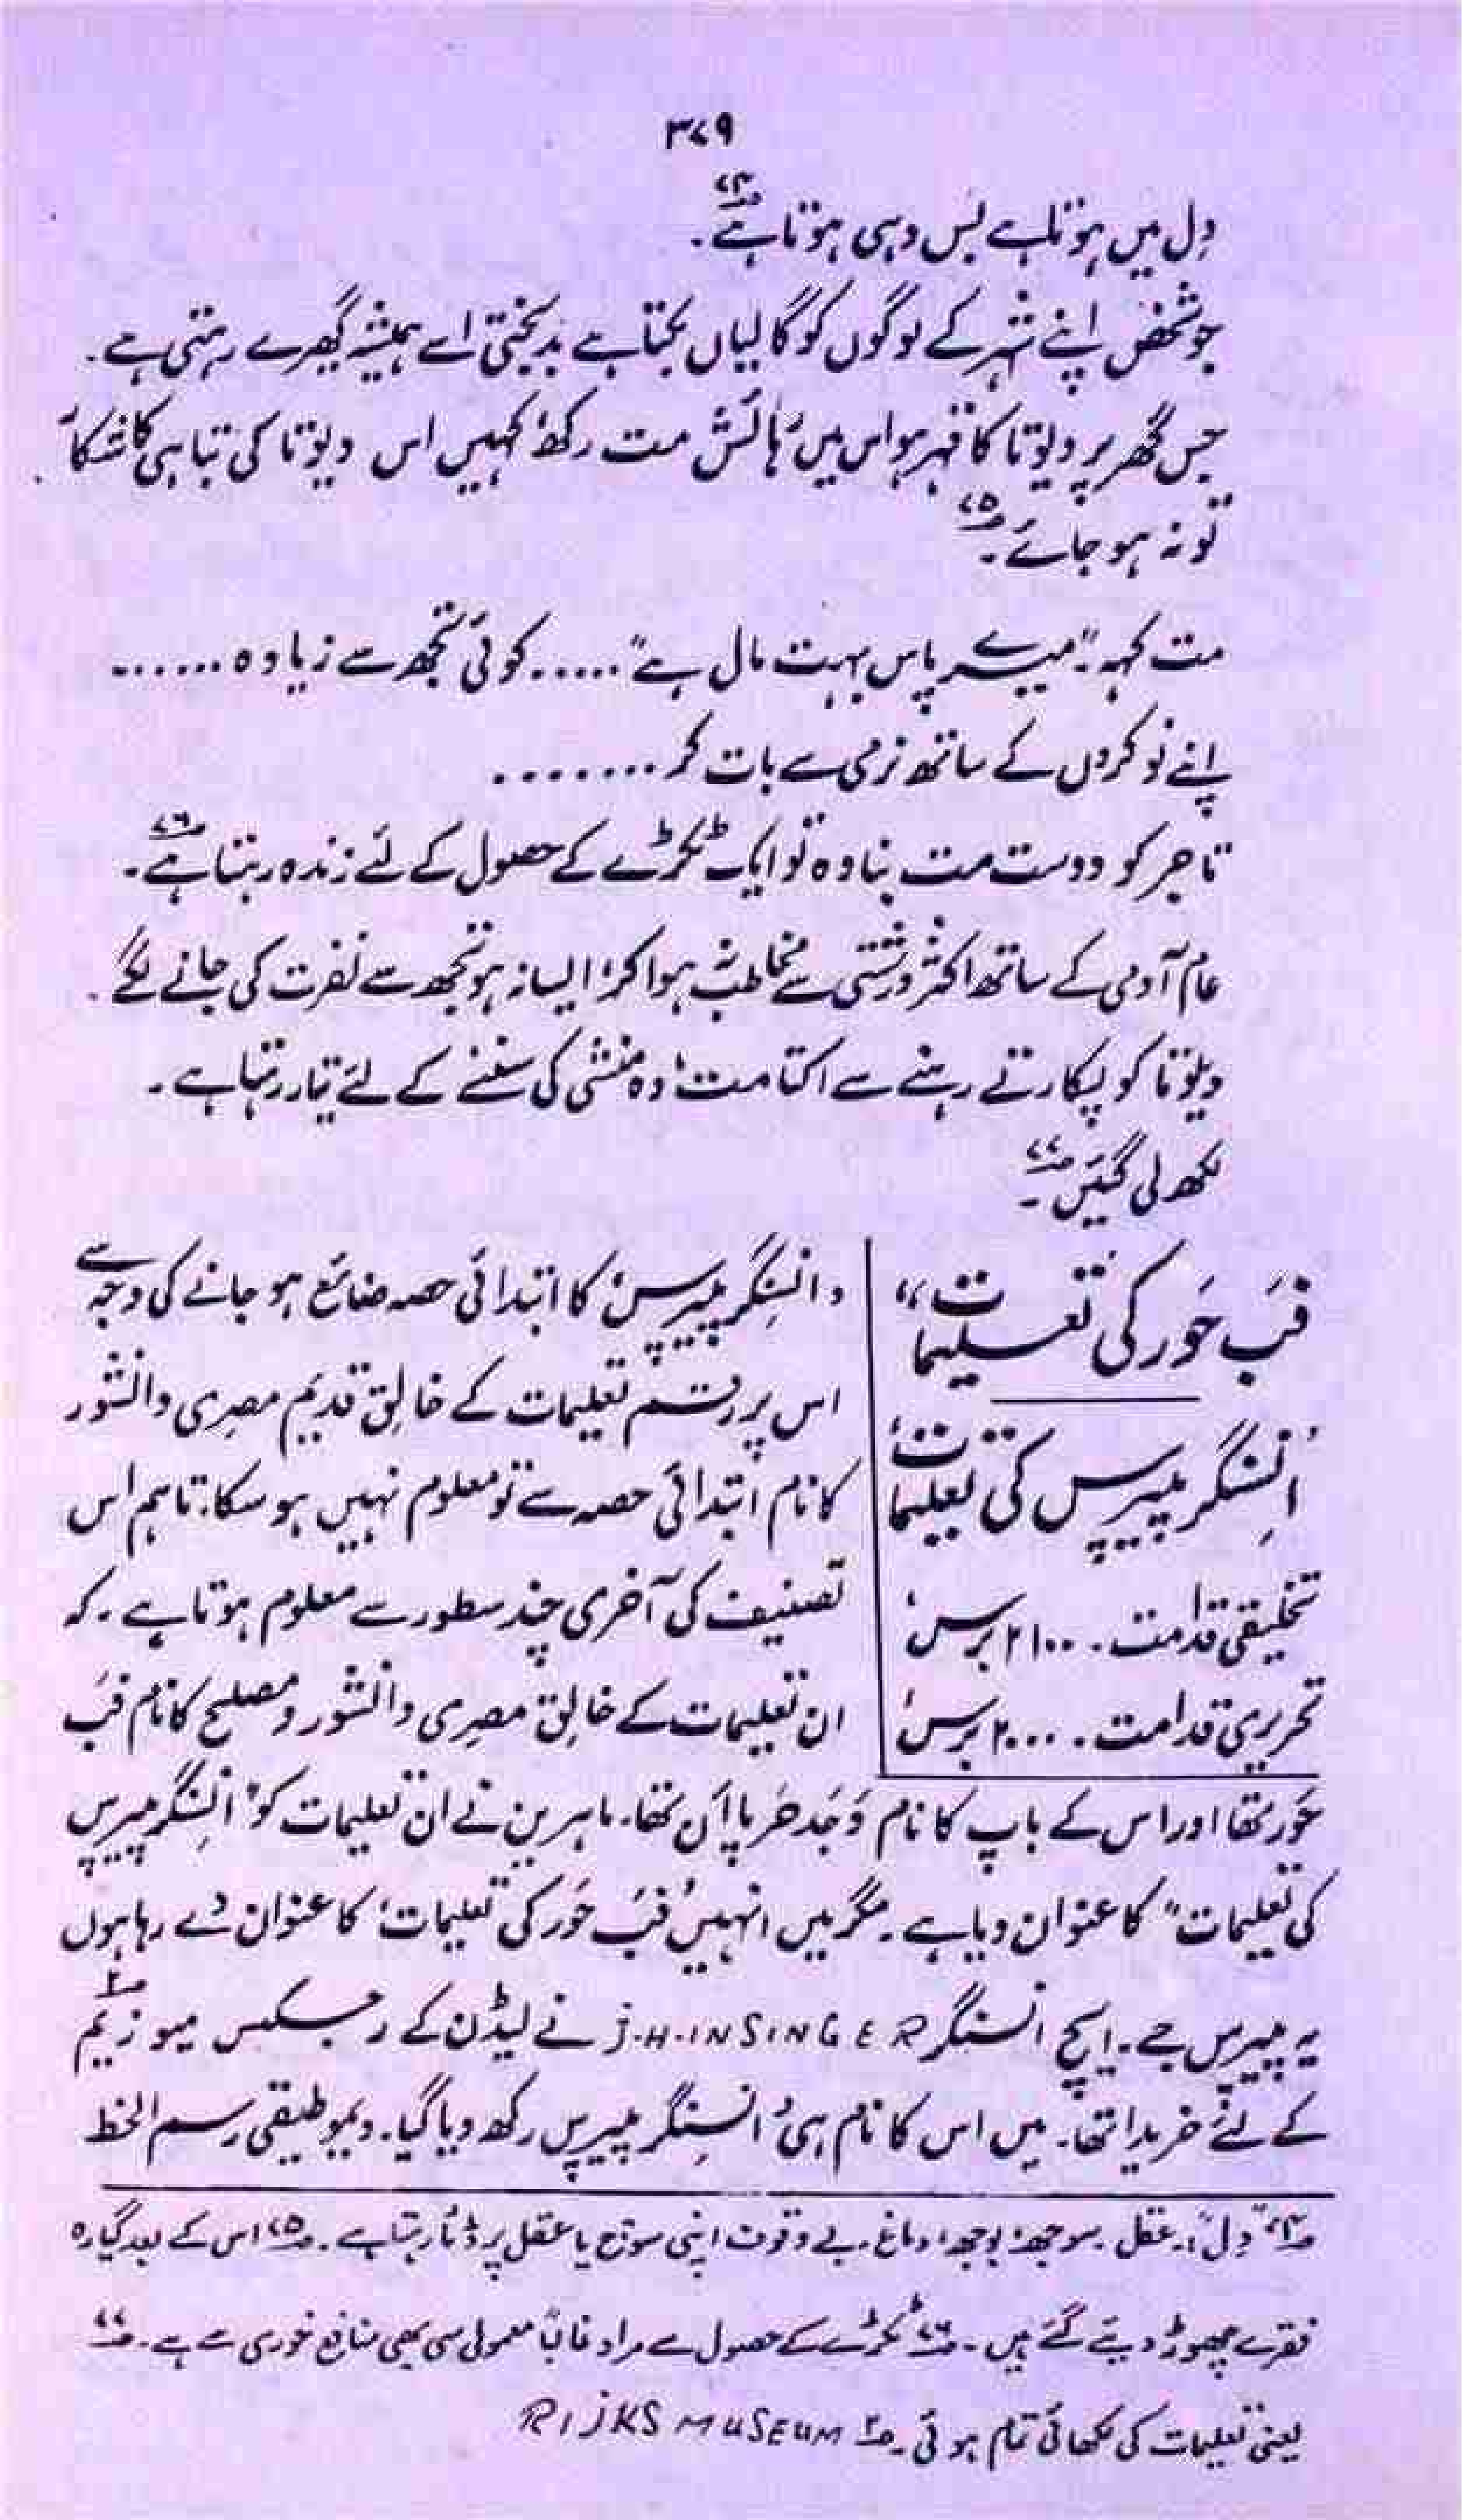 ۳۷۹
دِل میں ہوتا ہے بس وہی ہوتا ہے۷۴۔
جو شخص اپنے شہر کے لوگوں کو گالیاں بکتا ہے بدبختی اسے ہمیشہ گھیرے رہتی ہے۔
جس گھر پر دیوتا کا قہر ہو اس میں رہائش مت رکھ، کہیں اس دیوتا کی تباہی کا شکار
تو نہ ہو جائے۷۵۔
مت کہہ۔ "میرے پاس بہت مال ہے" ..... کوئی تجھ سے زیادہ ......
اپنے نوکروں کے ساتھ نرمی سے بات کر .......
تاجر کو دوست مت بنا وہ تو ایک ٹکڑے کے حصول کے لئے زندہ رہتا ہے۷۶۔
عام آدمی کے ساتھ اکثر درشتی سے مخاطب نہ ہوا کر، ایسا نہ ہو تجھ سے نفرت کی جانے لگے۔
دیوتا کو پکارتے رہنے سے اکتا مت، وہ منشی کی سننے کے لئے تیار رہتا ہے۔
لکھ لی گئیں۷۷۔
فَب حَور کی تعلیمات"
'اِنسنگر پیپرس کی تعلیمات'
تخلیقی قدامت۔ ۲۱۰۰ برس'
تحریری قدامت۔ ۲۰۰۰ برس'
'انسِنگر پیپرس' کا ابتدائی حصہ ضائع ہو جانے کی وجہ سے
اس پر رقم تعلیمات کے خالِق قدیم مصرِی دانشور
کا نام ابتدائی حصہ سے تو معلوم نہیں ہو سکا۔ تاہم اس
تصنیف کی آخری چند سطور سے معلوم ہوتا ہے۔ کہ
ان تعلیمات کے خالِق مصرِی دانشور و مصلح کا نام فَب
حَور تھا اور اس کے باپ کا نام وَجَد حَر پا اَن تھا۔ ماہرین نے ان تعلیمات کو "اِنسِنگر پیپرس
کی تعلیمات" کا عنوان دیا ہے۔ مگر میں انہیں 'فَب حَور کی تعلیمات' کا عنوان دے رہا ہوں
یہ پیپرس جے۔ ایچ انسنگر J.H.INSINGER نے لیڈن کے رجکس میوزیم۲
کے لئے خریدا تھا۔ بس اس کا نام ہی 'انسِنگر پیپرس' رکھ دیا گیا۔ دیموطیقی رسم الخط
۷۴ "دِل":۔ عقل۔ سوجھ بوجھ، دماغ۔ بے وقوف اپنی سوچ یا عقل پر ڈٹا رہتا ہے۔ ۷۵ اس کے بعد گیارہ
فقرے چھوڑ دیئے گئے ہیں۔ ۷۶ ٹکڑے کے حصول سے مراد غالباً معمولی سی بھی منافع خوری سے ہے۔ ۷۷
یعنی تعلیمات کی لکھائی تمام ہوئی۔ ۲ RIJKS MUSEUM